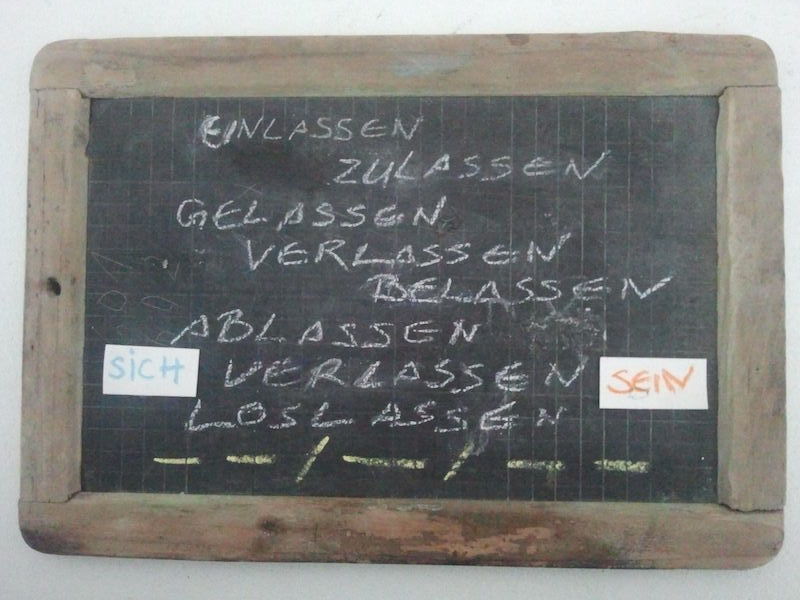 EINLASSEN
ZULASSEN
GELASSEN
VERLASSEN
BELASSEN
ABLASSEN
SICH VERLASSEN SEIN
LOSLASSEN